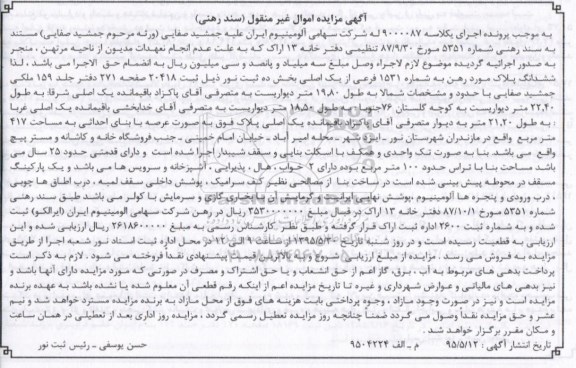 آگهی مزایده اموال غیر منقول (سند رهنی)
به موجب پرونده اجرای بکلاسه ۹۰۰۰۰۸۷ له شرکت سهامی آلومینیوم ایران علیه جمشید صفایی (ورثه مرحوم جمشید صفایی) مستند
به سند رهنی شماره ۵۳۵۱ مورخ ۸۷/۹/۳۰ تنظیمی دفتر خانه ۱۳ اراک که به علت عدم انجام تعهدات مدیون از ناحیه مرتهن ، منجر
به صدور اجرائیه گردیده موضوع لازم لاجراء وصل مبلغ سه میلیارد و پانصد و سی میلیون ریال به انضمام حق الاجرا می باشد ، لذا
ششدانگ پلاک مورد رهن به شماره ۱۵۳۱ فرعی از یک اصلی بخش ده ثبت نور ذیل ثبت ۲۰۴۱۸ صفحه ۲۷۱ دفتر جلد ۱۵۹ ملکی
جمشید صفایی با حدود و مشخصات شمالا به طول ۱۹،۸۰ متر دیواریست به متصرفی آقای پاکزاد باقیمانده یک اصلی شرقا: به طول
۲۲،۴۰ متر دیواریست به کوچه گلستان ۷۶ جنوبا: به طول ۱۸،۵۰ متر دیواریست به متصرفی آقای خدابخشی باقیمانده یک اصلی غربا
: به طول ۲۱،۲۰ متر به دیوار متصرفی آقای پاکزاد باقیمانده یک اصلی پلاک فوق به صورت عرصه با بنای احداثی به مساحت ۴۱۷
متر مربع واقع در مازندران شهرستان نور - ایزد شهر - محله امیر آباد - خیابان امام خمینی - جنب فروشگاه خانه و کاشانه و مستر پیچ
واقع می باشد. بنا به صورت تک واحدی و همکف با اسکلت بنایی و سقف شیبدار اجرا شده است و دارای قدمتی حدود ۲۵ سال می
باشد مساحت بنا با تراس حدود ۱۰۰ متر مربع بوده دارای ۲ خواب ، هال ، پذیرایی ، آشپزخانه و سرویس ها می باشد و یک پارکینگ
مسقف در محوطه پیش بینی شده است در ساخت بنا از مصالحی نظیر کف سرامیک ، پوشش داخلی سقف لمبه ، درب اطاق ها چوبی
، درب ورودی و پنجره ها آلومینیوم ،پوشش نهایی ایرانیت ، گرمایش از طریق بخاری گازی و سرمایش با کولر می باشد طبق سند رهنی
شماره ۵۳۵۱ مورخ ۸۷/۱۰/۱ دفتر خانه ۱۳ اراک در قبال مبلغ ۳۵۳۰۰۰۰۰۰۰ ریال در رهن شرکت سهامی الومینیوم ایران (ایرالکو) ثبت
شده و به شماره ثبت ۲۶۰۰ اداره ثبت اراک قرار گرفته و طبق نظر کارشناس رسمی به مبلغ ۲۶۱۸۶۰۰۰۰۰ ریال ارزیابی شده و این
ارزیابی به قطعیت رسیده است و در روز شنبه تاریخ ۱۳۹۵/۵/۳۰ از ساعت ۹ الی ۱۲ در محل اداره ثبت اسناد نور شعبه اجرا از طریق
مزایده به فروش می رسد . مزایده از مبلغ ارزیابی شروع و به بالاترین قیمت پیشنهادی نقدا فروخته می شود . لازم به ذکر است
پرداخت بدهی های مربوط به آب ، برق، گاز اعم از حق انشعاب و یا حق اشتراک و مصرف در صورتی که مورد مزایده دارای آنها باشد و
نیز بدهی های مالیاتی و عوارض شهرداری و غیره تا تاریخ مزایده اعم از اینکه رقم قطعی آن معلوم شده یا نشده باشد به عهده برنده
مزایده است و نیز در صورت وجود مازاد ، وجوه پرداختی بابت هزینه های فوق از محل مازاد به برنده مزایده مسترد خواهد شد و نیم
عشر و حق مزایده نقداً وصول می گردد ضمناً چنانچه روز مزایده تعطیل رسمی گردد ، مزایده روز اداری بعد از تعطیلی در همان ساعت
و مکان مقرر برگزار خواهد شد .
تاریخ انتشار آگهی : ۹۵/۵/۱۲ م - الف ۹۵۰۴۲۲۴ حسن یوسفی - رئیس ثبت نور